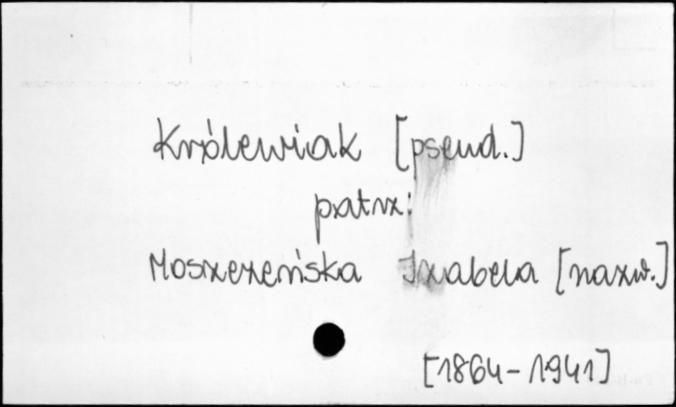 Królewiak [pseud.]
patrz:
Moszczeńska Izabela [nazw.]
[1864-1941]